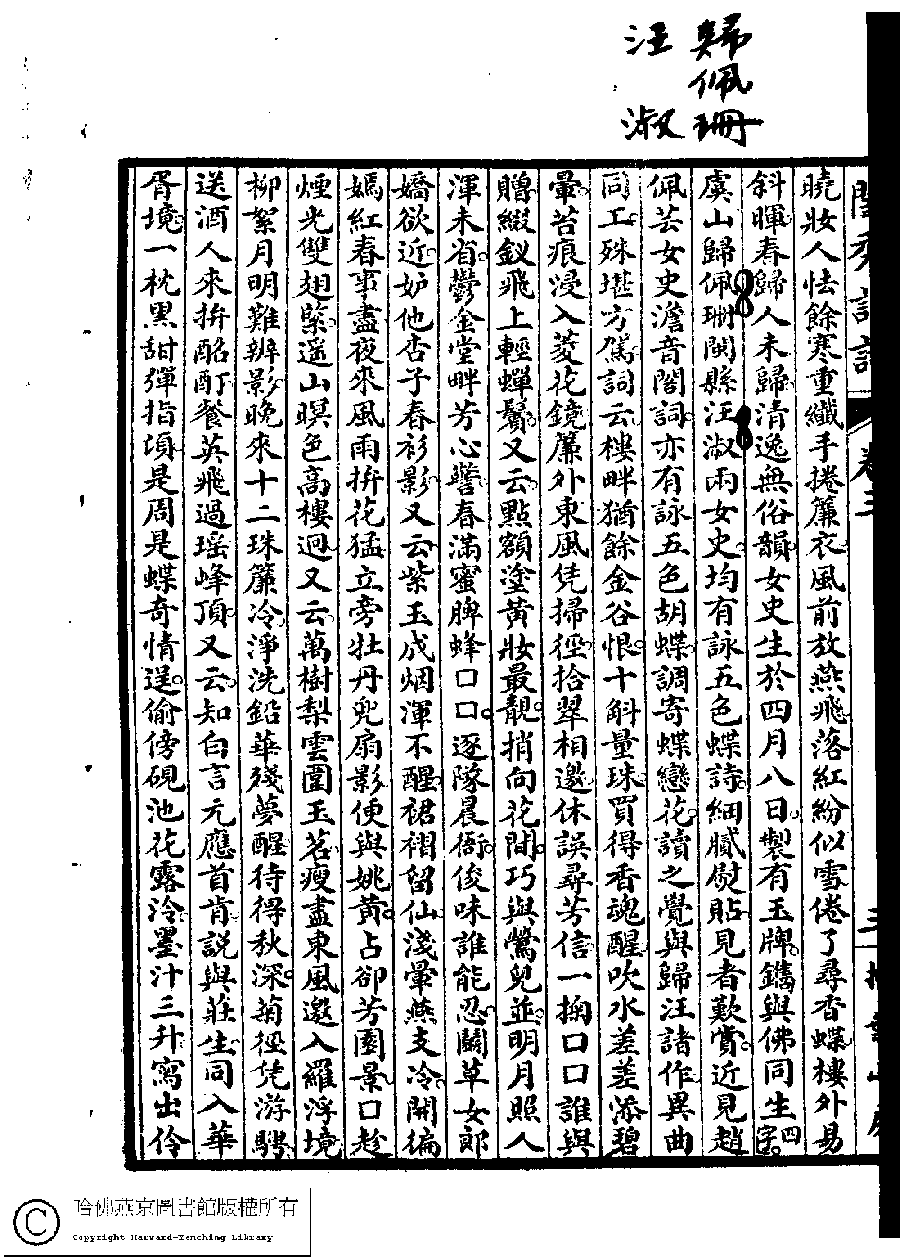 歸佩珊
汪淑
曉妝人怯餘寒重纖手捲簾衣風前放燕飛落紅紛似雪倦了尋香蝶樓外易
斜暉春歸人未歸清逸無俗韻女史生於四月八日製有玉牌鐫與佛同生四字
虞山歸佩珊閩縣汪淑雨女史均有詠五色蝶詩細膩熨貼見者歎賞近見趙
佩芸女史澹音閣詞亦有詠五色胡蝶調寄蝶戀花讀之覺與歸汪諸作異曲
同工殊堪方駕詞云樓畔猶餘金谷恨十斛量珠買得香魂醒吹水差差添碧
暈苔痕浸入菱花鏡簾外東風凭掃徑拾翠相邀休誤尋芳信一掬口口誰與
贈綴釵飛上輕蟬鬢又云點額塗黃妝最靚捎向花間巧與鶯兒並明月照人
渾未省鬱金堂畔芳心警春滿蜜脾蜂口口逐隊晨衙俊味誰能忍鬭草女郎
嬌欲近妒他杏子春衫影又云紫玉成烟渾不醒裙褶留仙淺暈燕支冷開徧
嫣紅春事盡夜來風雨拚花猛立旁牡丹兜扇影便與姚黃占卻芳園景口趁
煙光雙翅緊遥山暝色高樓迥又云萬樹梨雲圍玉茗瘦盡東風邀入羅浮境
柳絮月明難辨影晚來十二珠簾冷淨洗鉛華殘夢醒待得秋深菊徑凭游騁
送酒人來拚酩酊餐英飛過瑤峰頂又云知白言元應首肯說與莊生同入華
胥境一枕黑甜彈指頃是周是蝶奇情逞偷傍硯池花露冷墨汁三升寫出伶
閨秀詩話
卷三
哈佛燕京圖書館版權所有
Copyright Harvard-Yenching Library